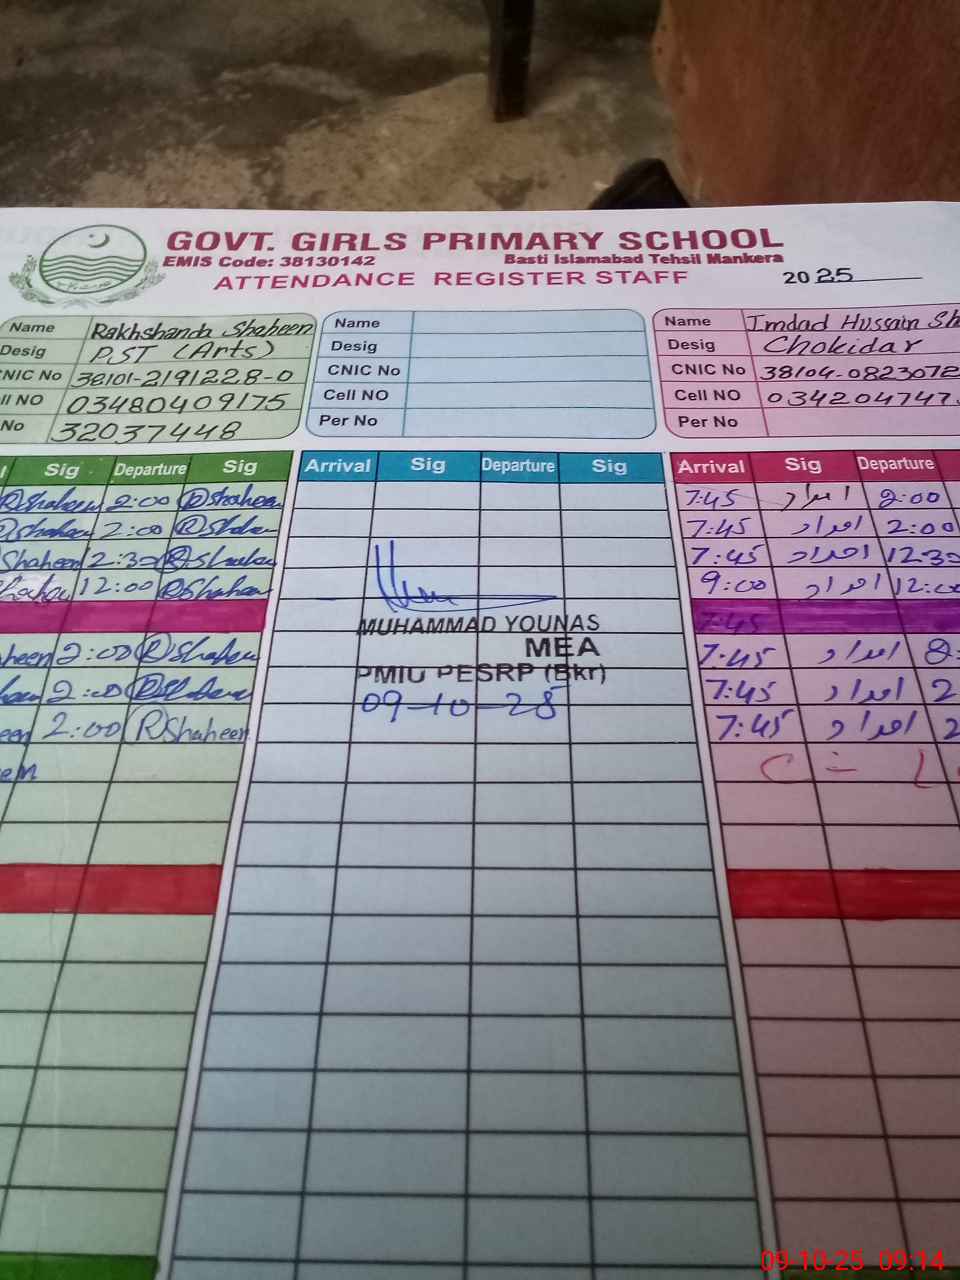 GOVT. GIRLS PRIMARY SCHOOL
EMIS Code: 38130142 Basti Islamabad Tehsil Mankera
ATTENDANCE REGISTER STAFF 2025
Name Rakhshanda Shaheen
Desig P.ST (Arts)
CNIC No 38101-2191228-0
ll NO 03480409175
No 32037448
Name
Desig
CNIC No
Cell NO
Per No
Name Imdad Hussain Sh
Desig Chokidar
CNIC No 38104-0823072
Cell NO 034204747
Per No
Sig Departure Sig Arrival Sig Departure Sig Arrival Sig Departure
RShaheen 2:00 RShaheen 7:45 امداد 2:00
Shaheen 2:00 RShaheen 7:45 امداد 2:00
Shaheen 12:30 RShaheen 7:45 امداد 12:30
Shaheen 12:00 RShaheen 9:00 امداد 12:00
7:45
MUHAMMAD YOUNAS
MEA
PMIU PESRP (Bkr)
09-10-25
heen 2:00 RShaheen 7:45 امداد
2:00 RShaheen 7:45 امداد 2
een 2:00 RShaheen 7:45 امداد 2
em C - L
09-10-25 09:14